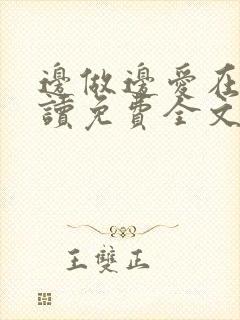 邊做邊愛在
讀免費全文
王雙正